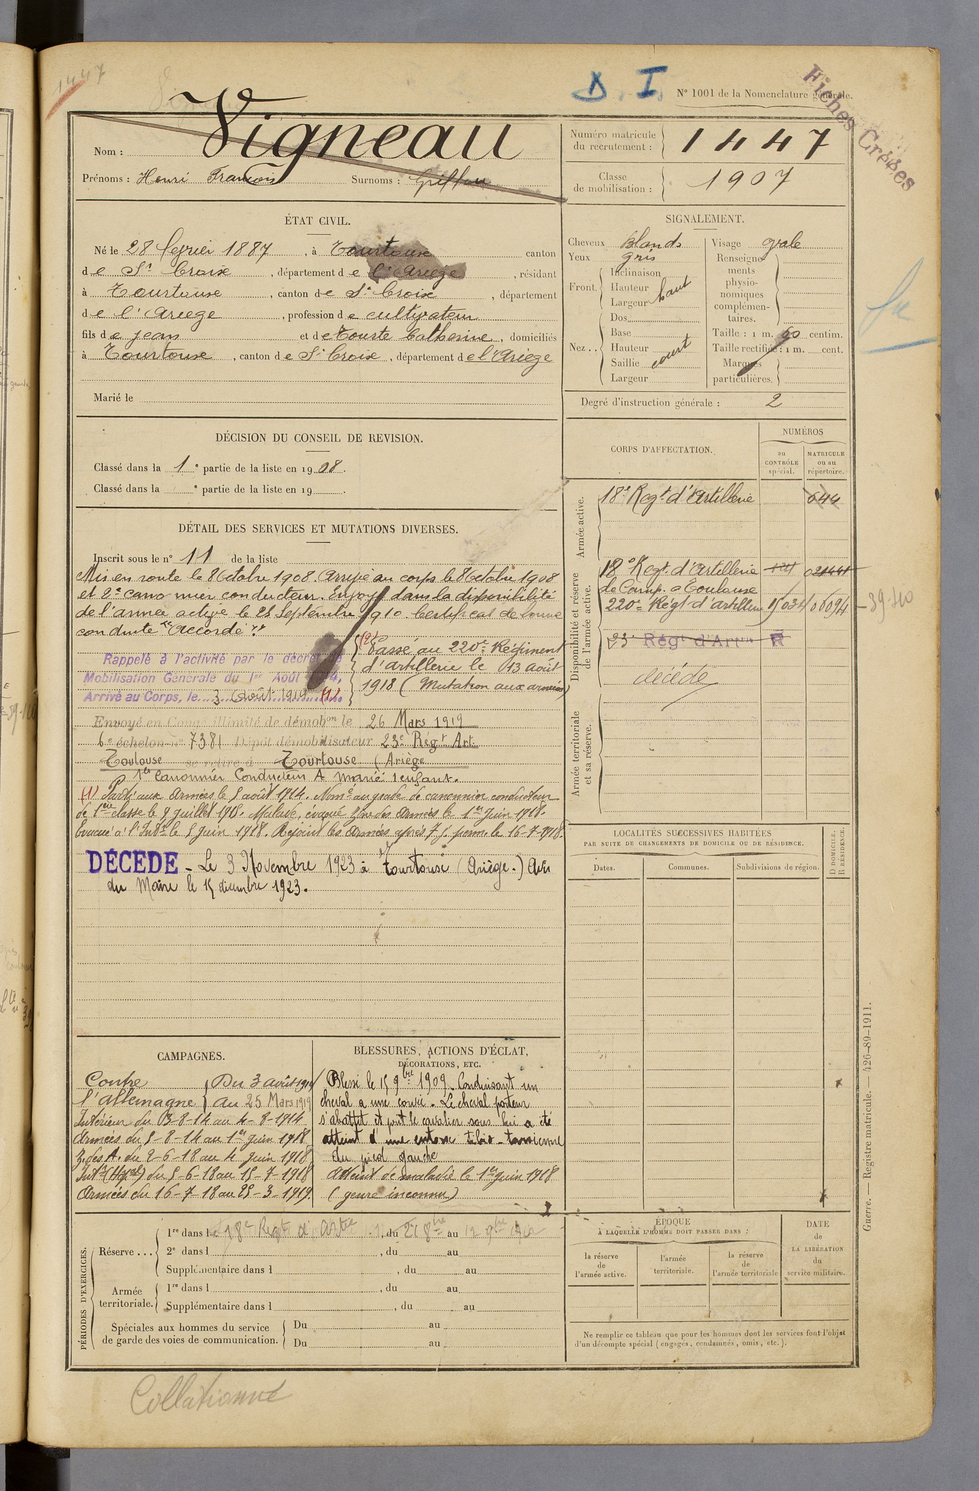 1447
D. I.
N° 1001 de la Nomenclature générale.
Fiches Créées
Nom : Vigneau
Prénoms : Henri François Surnoms : Griffou
Numéro matricule du recrutement : 1447
Classe de mobilisation : 1907
ÉTAT CIVIL.
Né le 28 février 1887, à Tourtouse canton
de Ste Croix, département de l'Ariège, résidant
à Tourtouse, canton de Ste Croix, département
de l'Ariège, profession de cultivateur
fils de Jean et de Tourte Catherine, domiciliés
à Tourtouse, canton de Ste Croix, département de l'Ariège
Marié le
SIGNALEMENT.
Cheveux blonds
Yeux gris
Front. Inclinaison
Hauteur haut
Largeur
Nez.. Dos
Base
Hauteur court
Saillie
Largeur
Visage ovale
Renseignements physionomiques complémentaires.
Taille : 1 m. 60 centim.
Taille rectifiée : 1 m. cent.
Marques particulières.
Degré d'instruction générale : 2
DÉCISION DU CONSEIL DE REVISION.
Classé dans la 1e partie de la liste en 1908.
Classé dans la e partie de la liste en 19
DÉTAIL DES SERVICES ET MUTATIONS DIVERSES.
Inscrit sous le n° 11 de la liste
Mis en route le 8 Octobre 1908. Arrivé au corps le 8 Octobre 1908
et 2e canonnier conducteur. Envoyé dans la disponibilité
de l'armée active le 25 Septembre 1910. Certificat de bonne
conduite "Accordé".
Rappelé à l'activité par le décret de
Mobilisation Générale du 1er Août 1914,
Arrivé au Corps, le 3 Août 1914 (1)
(2) Passé au 220e Régiment
d'artillerie le 13 août
1918 (Mutation aux armées)
Envoyé en Congé illimité de démobon le 26 Mars 1919
6e échelon n° 7381 Dépôt démobilisateur 23e Régt Art.
Toulouse se retire à Tourtouse (Ariège)
1er Canonnier Conducteur A marié 1 enfant.
(1) Parti aux Armées le 5 août 1914. Nommé au grade de canonnier conducteur
de 1ère classe le 9 juillet 1915. Malade, évacué zône des armées le 1er juin 1918.
Évacué à l'Intr le 5 juin 1918. Rejoint les Armées après 7 j. perm. le 16-7-1918.
DÉCÉDÉ - Le 3 Novembre 1923 à Tourtouse (Ariège.) Avis
du Maire le 15 décembre 1923.
CORPS D'AFFECTATION.
NUMÉROS
DU CONTRÔLE spécial.
MATRICULE ou au répertoire.
Armée active.
18e Régt d'Artillerie 644
Disponibilité et réserve de l'armée active.
18e Régt d'Artillerie
de Camp. à Toulouse
220e Régt d'artillerie
39-40
23e Régt d'Artie R
décédé
Armée territoriale et sa réserve.
LOCALITÉS SUCCESSIVES HABITÉES
PAR SUITE DE CHANGEMENTS DE DOMICILE OU DE RÉSIDENCE.
Dates. Communes. Subdivisions de région. D DOMICILE. R RÉSIDENCE.
CAMPAGNES.
Contre Du 3 août 1914
l'Allemagne au 25 Mars 1919
Intérieur du 03-8-14 au 4-8-1914
Armées du 5-8-14 au 1er juin 1918
Z. des A. du 2-6-18 au 4 juin 1918
Intr (Hopal) du 5-6-18 au 15-7-1918
Armées du 16-7-18 au 25-3-1919.
BLESSURES, ACTIONS D'ÉCLAT,
DÉCORATIONS, ETC.
Blessé le 15 9bre 1909. Conduisant un
cheval a une corvée. Le cheval porteur
s'abattit et prit le cavalier sous lui a été
atteint d'une entorse tibio-tarsienne
du pied gauche
Atteint de maladie le 1er juin 1918
(genre inconnu)
PÉRIODES D'EXERCICES.
Réserve... 1re dans le 18e Régt d'Artie, du 21 8bre au 12 9bre 1912
2e dans l , du au
Supplémentaire dans l , du au
Armée territoriale. 1re dans l , du au
Supplémentaire dans l , du au
Spéciales aux hommes du service de garde des voies de communication. Du au
Du au
ÉPOQUE
À LAQUELLE L'HOMME DOIT PASSER DANS :
la réserve de l'armée active.
l'armée territoriale.
la réserve de l'armée territoriale
DATE DE LA LIBÉRATION du service militaire.
Ne remplir ce tableau que pour les hommes dont les services font l'objet
d'un décompte spécial (engagés, condamnés, omis, etc.).
Guerre. — Registre matricule. — 426-89-1911.
Collationné